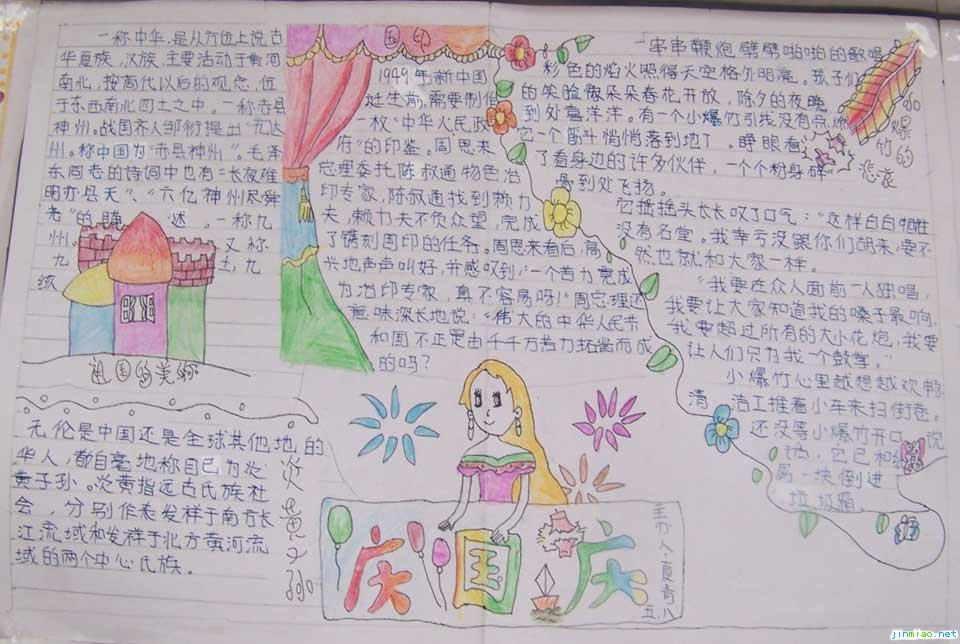 一称中华,是从方位上说古
华夏族,汉族,主要活动于黄河
南北,按商代以后的观念,位
于东西南北四土之中。一称赤县
神州。战国齐人邹衍提出"九大
州。称中国为"赤县神州"。毛泽
东同志的诗词中也有"长夜难
明赤县天"、"六亿神州尽舜
尧"的 述。一称九
州。 又称
九 土,九
祖国的美称
国印
1949年新中国
诞生前,需要制作
一枚"中华人民政
府"的印鉴。周恩来
总理委托陈叔通物色治
印专家,陈叔通找到赖力
夫,赖力夫不负众望,完成
了镌刻国印的任务。周恩来看后,高
兴地声声叫好,并感叹到:"一个苦力竟成
为治印专家,真不容易呀!"周总理还
意味深长地说:"伟大的中华人民共
和国不正是由千千万苦力拓凿而成
的吗?
小爆竹的悲哀
一串串鞭炮劈劈啪啪的歌唱
彩色的焰火照得天空格外明亮。孩子们
的笑脸像朵朵春花开放,除夕的夜晚
到处喜洋洋。有一个小爆竹引线没有点燃
它一个筋斗悄悄落到地下。睁眼看
了看身边的许多伙伴,一个个粉身碎
骨到处飞扬。
它摇摇头长长叹了口气:"这样白白牺牲
没有名堂。我幸亏没跟你们胡来,要不
然也就和大家一样。
"我要在众人面前一人独唱,
我要让大家知道我的嗓子最响,
我要超过所有的大小花炮,我要
让人们只为我一个鼓掌。"
小爆竹心里越想越欢畅
清洁工推着小车来扫街巷。
还没等小爆竹开口说
话,它已和
一块倒进
垃圾箱
炎黄子孙
无伦是中国还是全球其他地的
华人,都自毫地称自己为炎
黄子孙。炎黄指远古氏族社
会,分别作表发样于南方长
江流域和发样于北方黄河流
域的两个中心氏族。
庆国庆
主办人:夏青
五.八
jinmiao.net